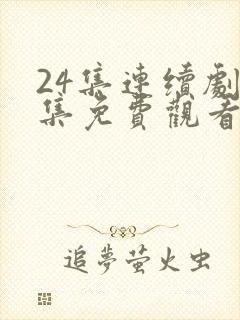 24集連續劇
集免費觀看
追夢萤火虫